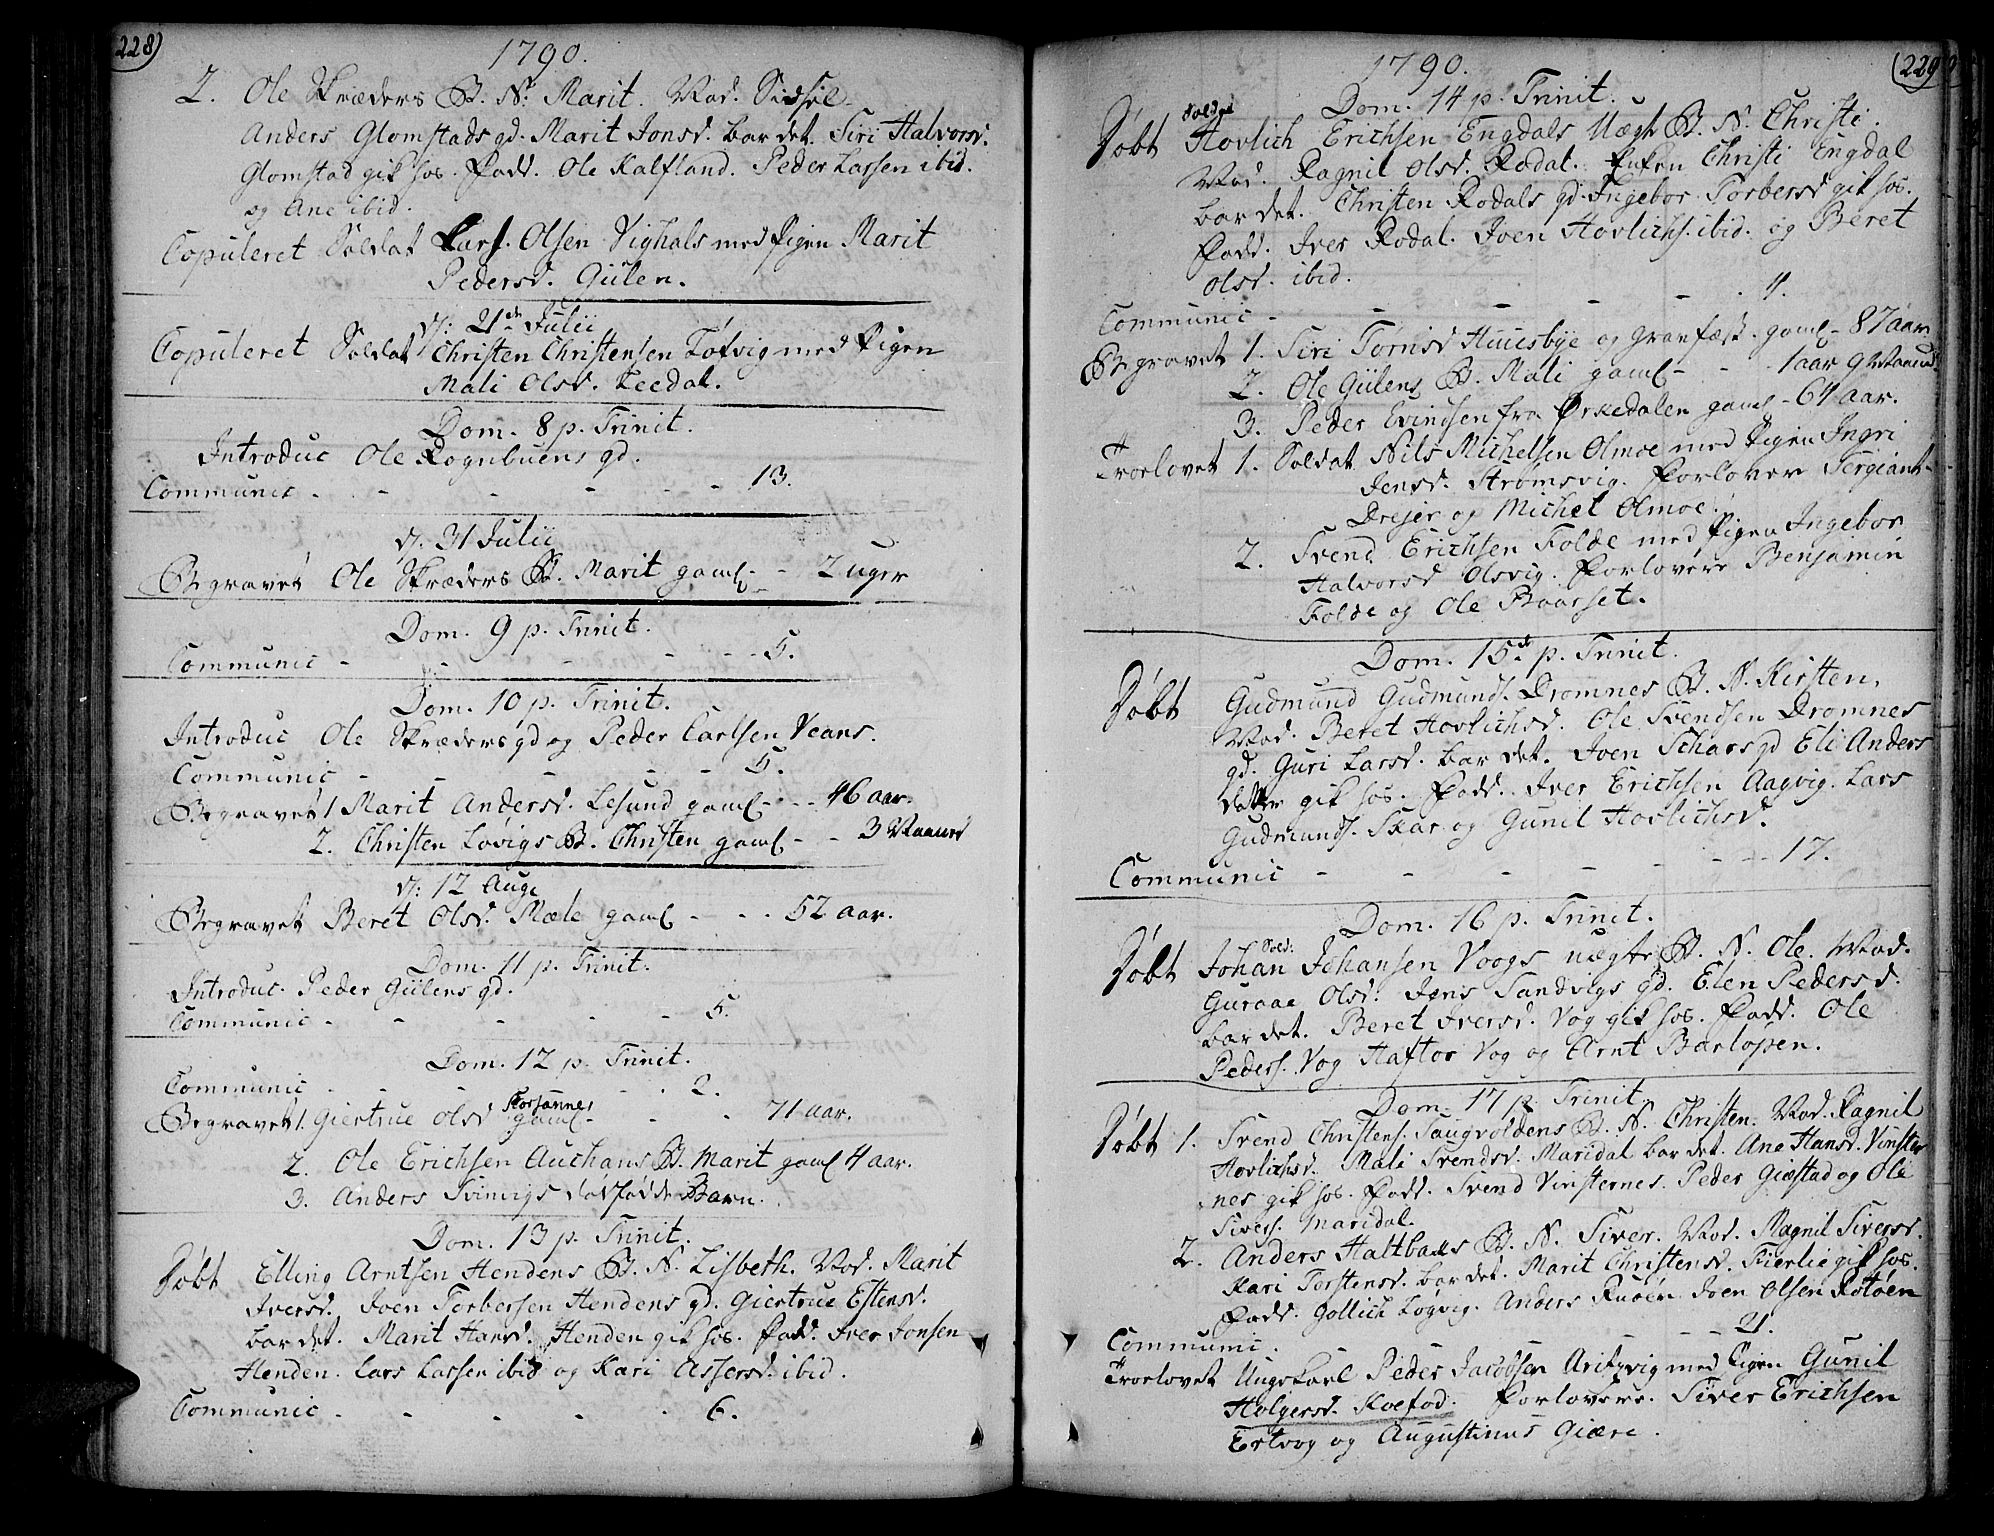 228)
1790.
2. Ole Skræders B. N. Marit. Mod. Sidsel
Anders Glomstads gd. Marit Jonsd. bar det. Siri Halvorsd.
Glomstad gik hos. Fadd. Ole Kalfland. Peder Larsen ibid.
og Ane ibid.
Copuleret Soldat Lars Olsen Vighals med Pigen Marit
Pedersd. Gülen.
d. 21de Julii
Copuleret Soldat Christen Christensen Løfvig med Pigen
Mali Olsd. Leedal.
Dom. 8 p. Trinit.
Introduc Ole Rognbuens gd.
Communic - - - - - 13.
d. 31 Julii
Begravet Ole Skræders B. Marit gaml - - 2 uger
Dom. 9 p. Trinit.
Communic - - - - - 5.
Dom. 10 p. Trinit.
Introduc Ole Skræders gd og Peder Carlsen Veans.
Communic - - - - - 5.
Begravet 1 Marit Andersd. Lesund gaml - - - 46 aar.
2. Christen Lovigs B. Christen gaml - - 3 Maaned
d. 12 Aug
Begravet Beret Olsd. Mæle gaml - - - 52 aar.
Dom. 11 p. Trinit.
Introduc. Peder Gülens gd.
Communic - - - - - 5.
Dom. 12 p. Trinit.
Communic - - - - - 2.
Begravet 1. Giertrue Olsd Korsannes gaml - - - 71 aar.
2. Ole Erichsen Auchans B. Marit gaml 4 aar.
3. Anders Svinvigs dødfødde Barn.
Dom. 13 p. Trinit.
Døbt Elling Arntsen Hendens B. N. Lisbeth. Mod. Marit
Iversd. Joen Torbersen Hendens gd. Giertrue Estensd.
bar det. Marit Hansd. Henden gik hos. Fadd. Iver Jonsen
Henden. Lars Larsen ibid og Kari Assersd. ibid.
Communic - - - - - 6.
(229
1790.
Dom. 14 p. Trinit.
Døbt Soldat Hovlich Erichsen Engdals Uægte B. N. Christi.
Mod. Ragnil Olsd. Rodal. Enken Christi Engdal
bar det. Christen Rodals gd. Ingebor Torbersd gik hos.
Fadd. Iver Rodal. Joen Hovlichs. ibid. og Beret
Olsd. ibid.
Communic - - - - - 4.
Begravet 1. Siri Tornsd Huusbye og Granfæst. gaml - 87 aar
2. Ole Gülens B. Mali gaml - - - 1 aar 9 Maaned
3. Peder Evindsen fra Ørkedalen gaml - 64 aar.
Troelovet 1. Soldat Nils Michelsen Olmoe med Pigen Ingri
Jensd. Strømsvig. Forlover Sergiant
Drejer og Michel Olmoe.
2. Svend Erichsen Folde med Pigen Ingebor
Halvorsd Olsvig. Forlovere Benjamin
Folde og Ole Baarset.
Dom. 15de p. Trinit.
Døbt Gudmund Gudmunds. Dromnes B. N. Kirsten.
Mod. Beret Hovlichsd. Ole Svendsen Dromnes
gd. Guri Larsd. bar det. Joen Schars gd Eli Anders
datter gik hos. Fadd. Iver Erichsen Aagvig. Lars
Gudmunds. Skar og Gunil Hovlichsd.
Communic - - - - - - 17.
Dom. 16 p. Trinit.
Døbt Johan Sold. Johansen Voogs uægte B. N. Ole. Mod.
Guraae Olsd. Jens Sandvigs gd. Elen Pedersd.
bar det. Beret Iversd. Vog gik hos. Fadd. Ole
Peders. Vog Haftor Vog og Arnt Barlopen.
Dom. 17 p. Trinit.
Døbt 1. Svend Christens. Saugvoldens B. N. Christen. Mod. Ragnil
Hovlichsd. Mali Svendsd. Maridal bar det. Ane Hansd. Vinster
nes gik hos. Fadd. Svend Vinsternes. Peder Giæstad og Ole
Sivers. Maridal.
2. Anders Haltbaks B. N. Siver. Mod. Magnil Siversd.
Kari Torstensd. bar det. Marit Christensd. Fierlie gik hos.
Fadd. Gollich Løgvig. Anders Ruøen Joen Olsen Rotøen
Communi. - - - - - - 21.
Troelovet Ungkarl Peder Jacobsen Aritzvig med Pigen Gunil
Holgersd. Koefod. Forlovere. Siver Erichsen
Ertvog og Augustinus Giære.